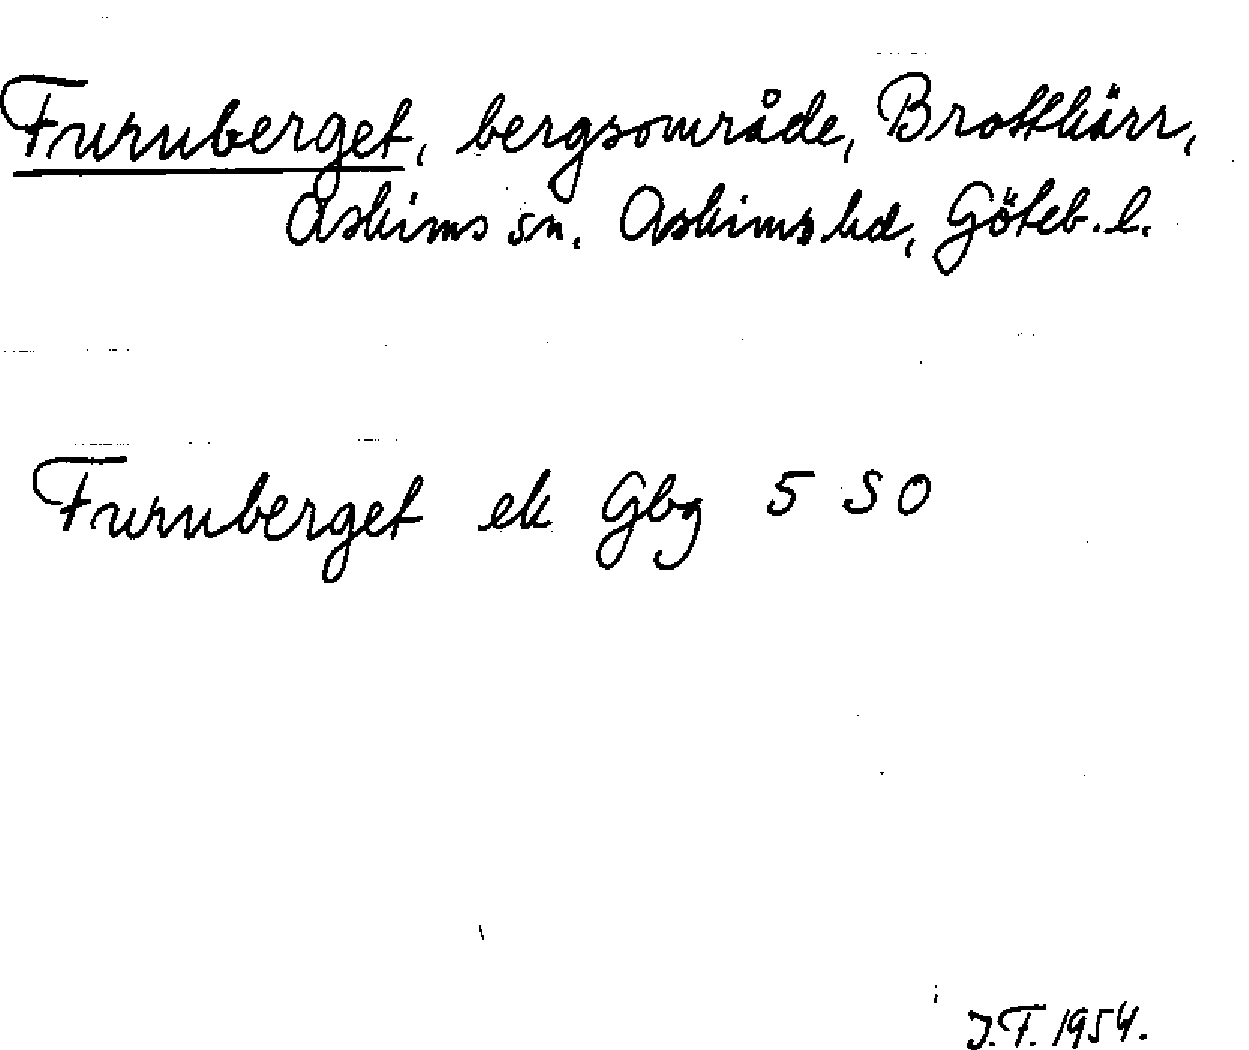 Furuberget, bergsområde, Brottkärr,
Askims sn. Askims hd, Göteb. l.
Furuberget ek Gbg 5 SO
J.F. 1954.